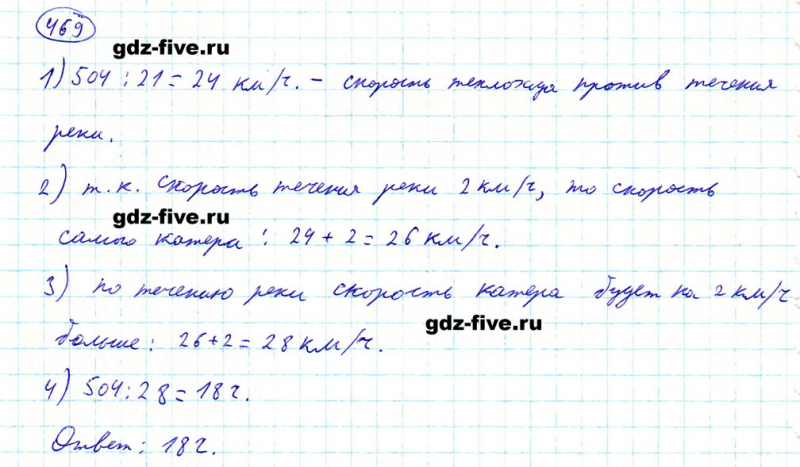 469
gdz-five.ru
1) 504 : 21 = 24 км/ч. – скорость теплохода против течения
реки.
2) т.к. скорость течения реки 2 км/ч, то скорость
gdz-five.ru
самого катера : 24 + 2 = 26 км/ч.
3) по течению реки скорость катера будет на 2 км/ч
gdz-five.ru
больше: 26+2 = 28 км/ч.
4) 504 : 28 = 18 ч.
Ответ: 18 ч.